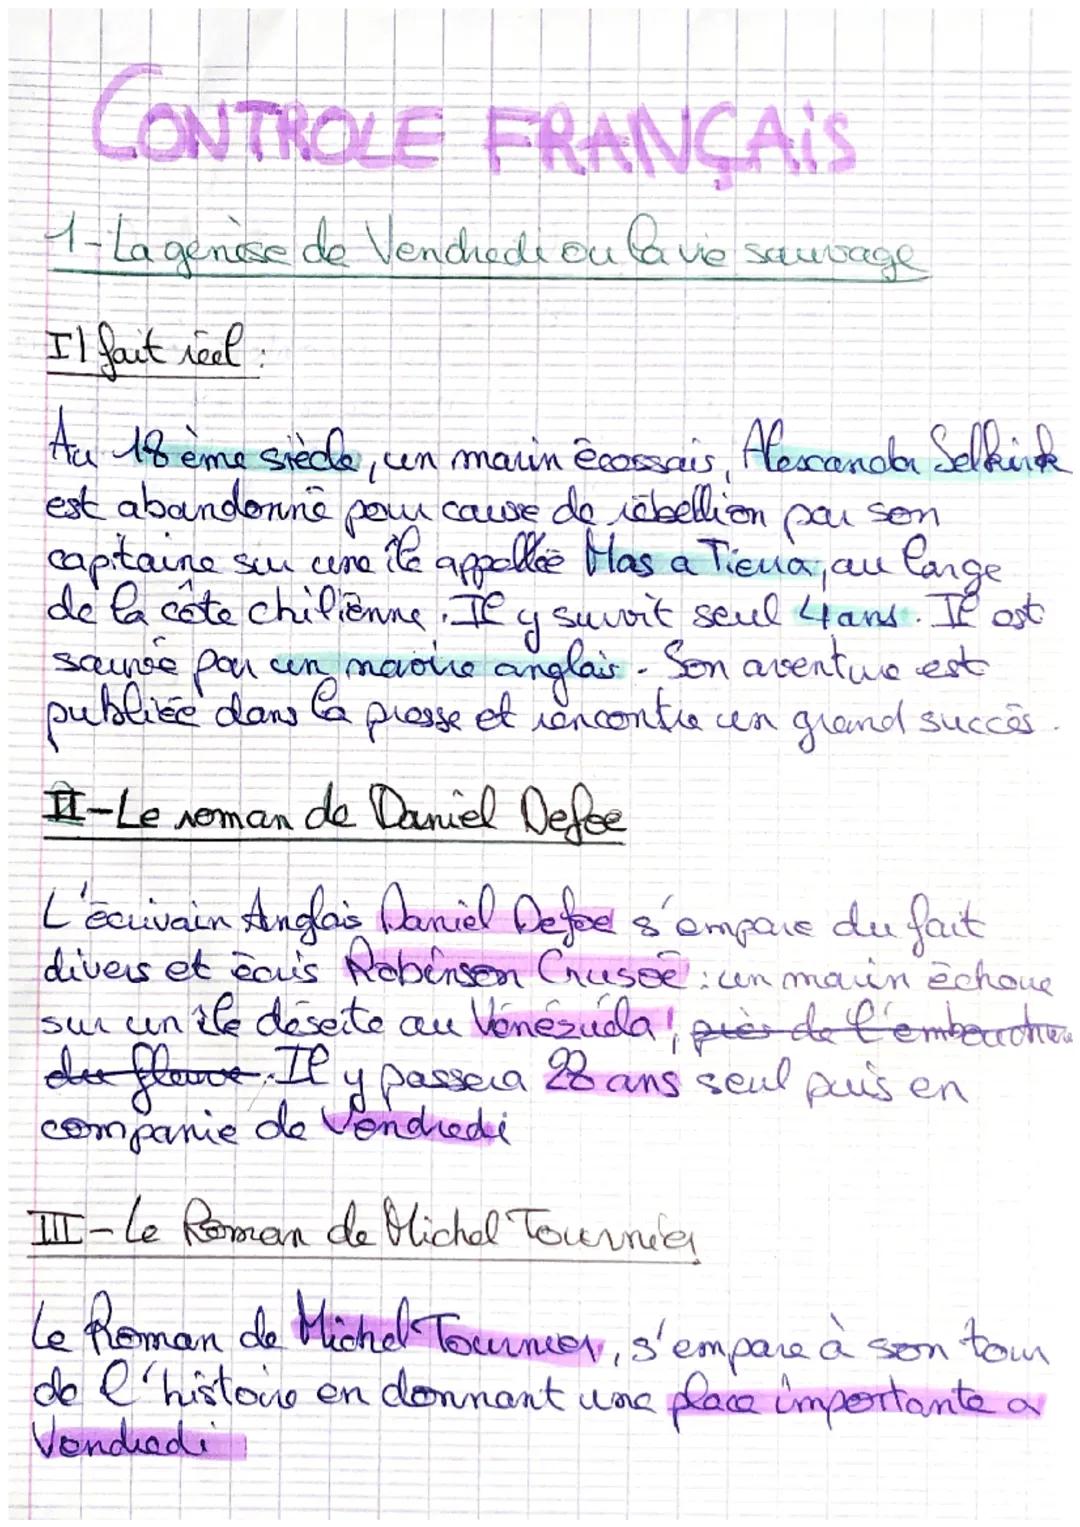 CONTROLE FRANÇAIS
1-La genèse de Vendredi ou la vie sauvage
Il fait réel :
Au 18 ème siècle, un marin écossais, Alexander Selkirk
est abandonné pour cause de rébellion par son
capitaine sur une île appellée Mas a Tierra, au large
de la côte chilienne. Il y survit seul 4 ans. Il est
sauvée par un navire anglais. Son aventure est
publiée dans la presse et rencontre un grand succès.
II-Le roman de Daniel Defoe
L'écrivain Anglais Daniel Defoe s'empare du fait
divers et écris Robinson Crusoé : un marin échoue
sur un île déserte au Vénézuela, près de l'embouchure
du fleuve. Il y passera 28 ans seul puis en
companie de Vendredi
III-Le Roman de Michel Tournier
Le Roman de Michel Tournier, s'empare à son tour
de l'histoire en donnant une place importante a
Vendredi